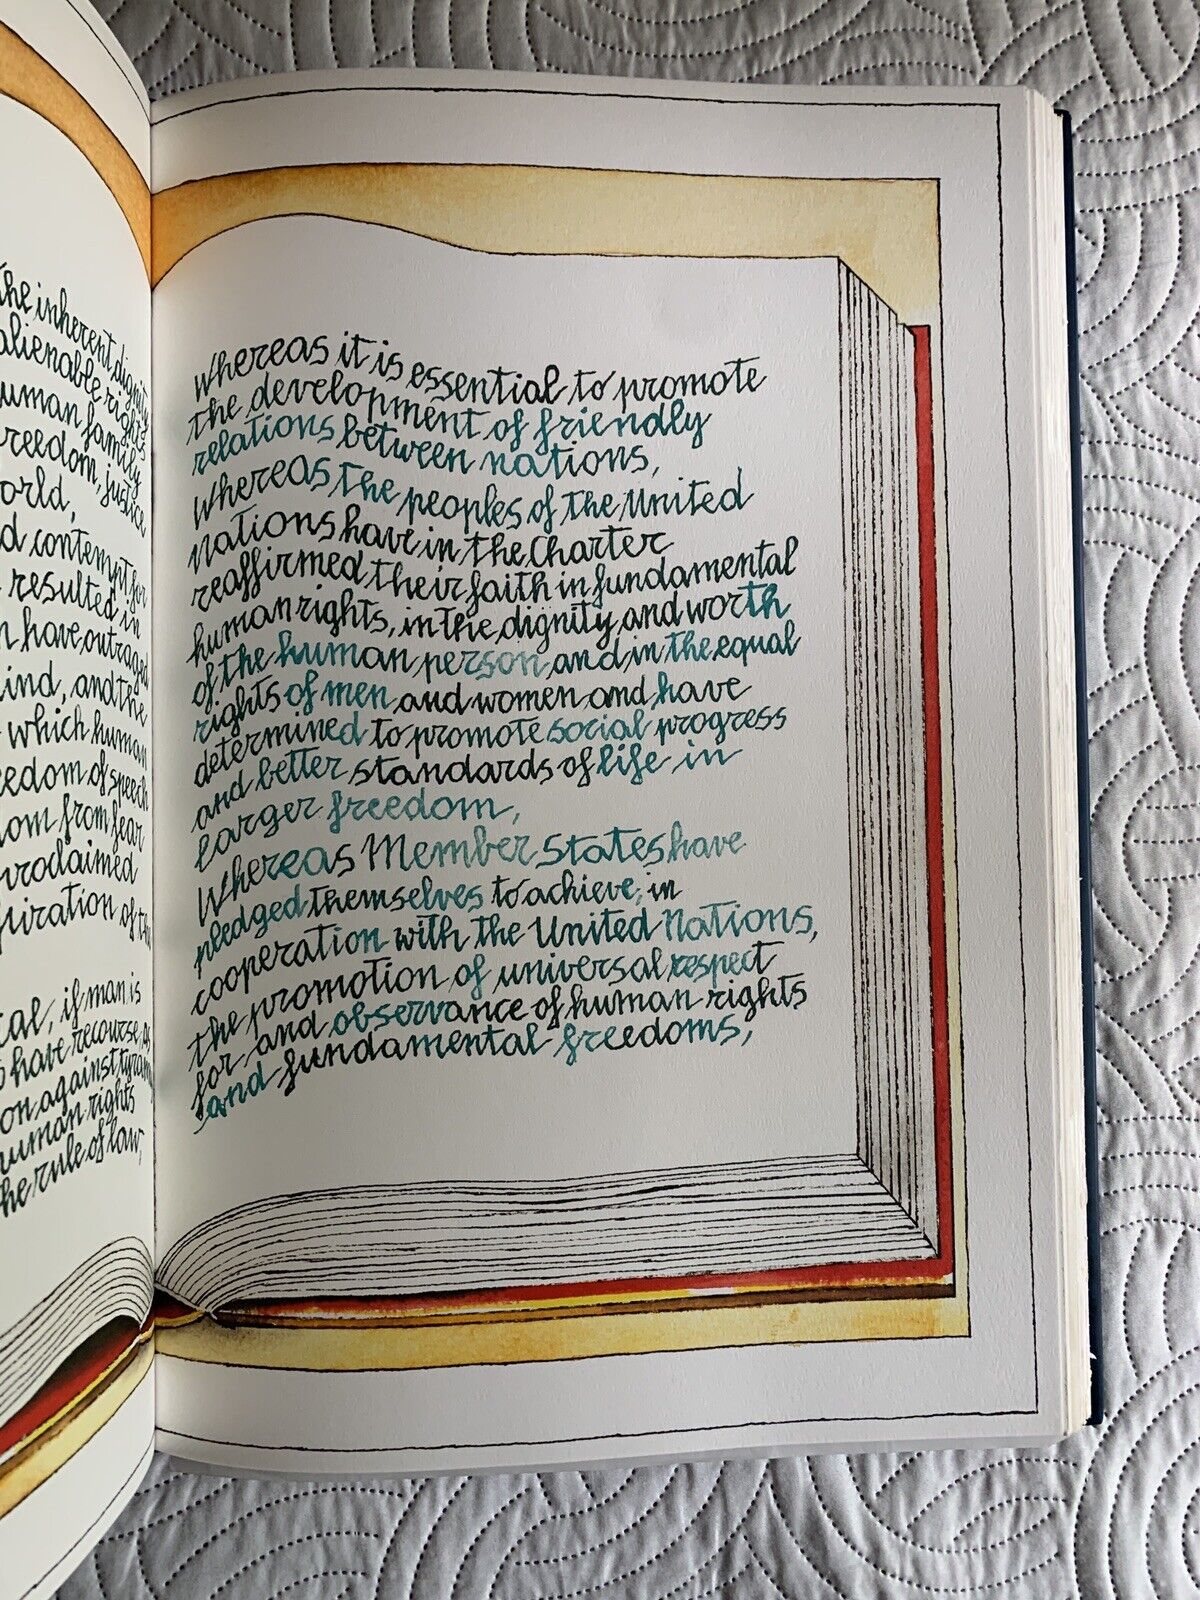 the inherent dignity
alienable rights
human family
freedom, justice
world,
d contempt for
resulted in
have outraged
ind, and the
which human
eedom of speech
from fear
proclaimed
piration of the
cal, if man is
to have recourse, as
on against tyranny
human rights
the rule of law,
whereas it is essential to promote
the development of friendly
relations between nations,
whereas the peoples of the United
Nations have in the Charter
reaffirmed their faith in fundamental
human rights, in the dignity and worth
of the human person and in the equal
rights of men and women and have
determined to promote social progress
and better standards of life in
larger freedom,
Whereas Member States have
pledged themselves to achieve, in
cooperation with the United Nations,
the promotion of universal respect
for and observance of human rights
and fundamental freedoms,